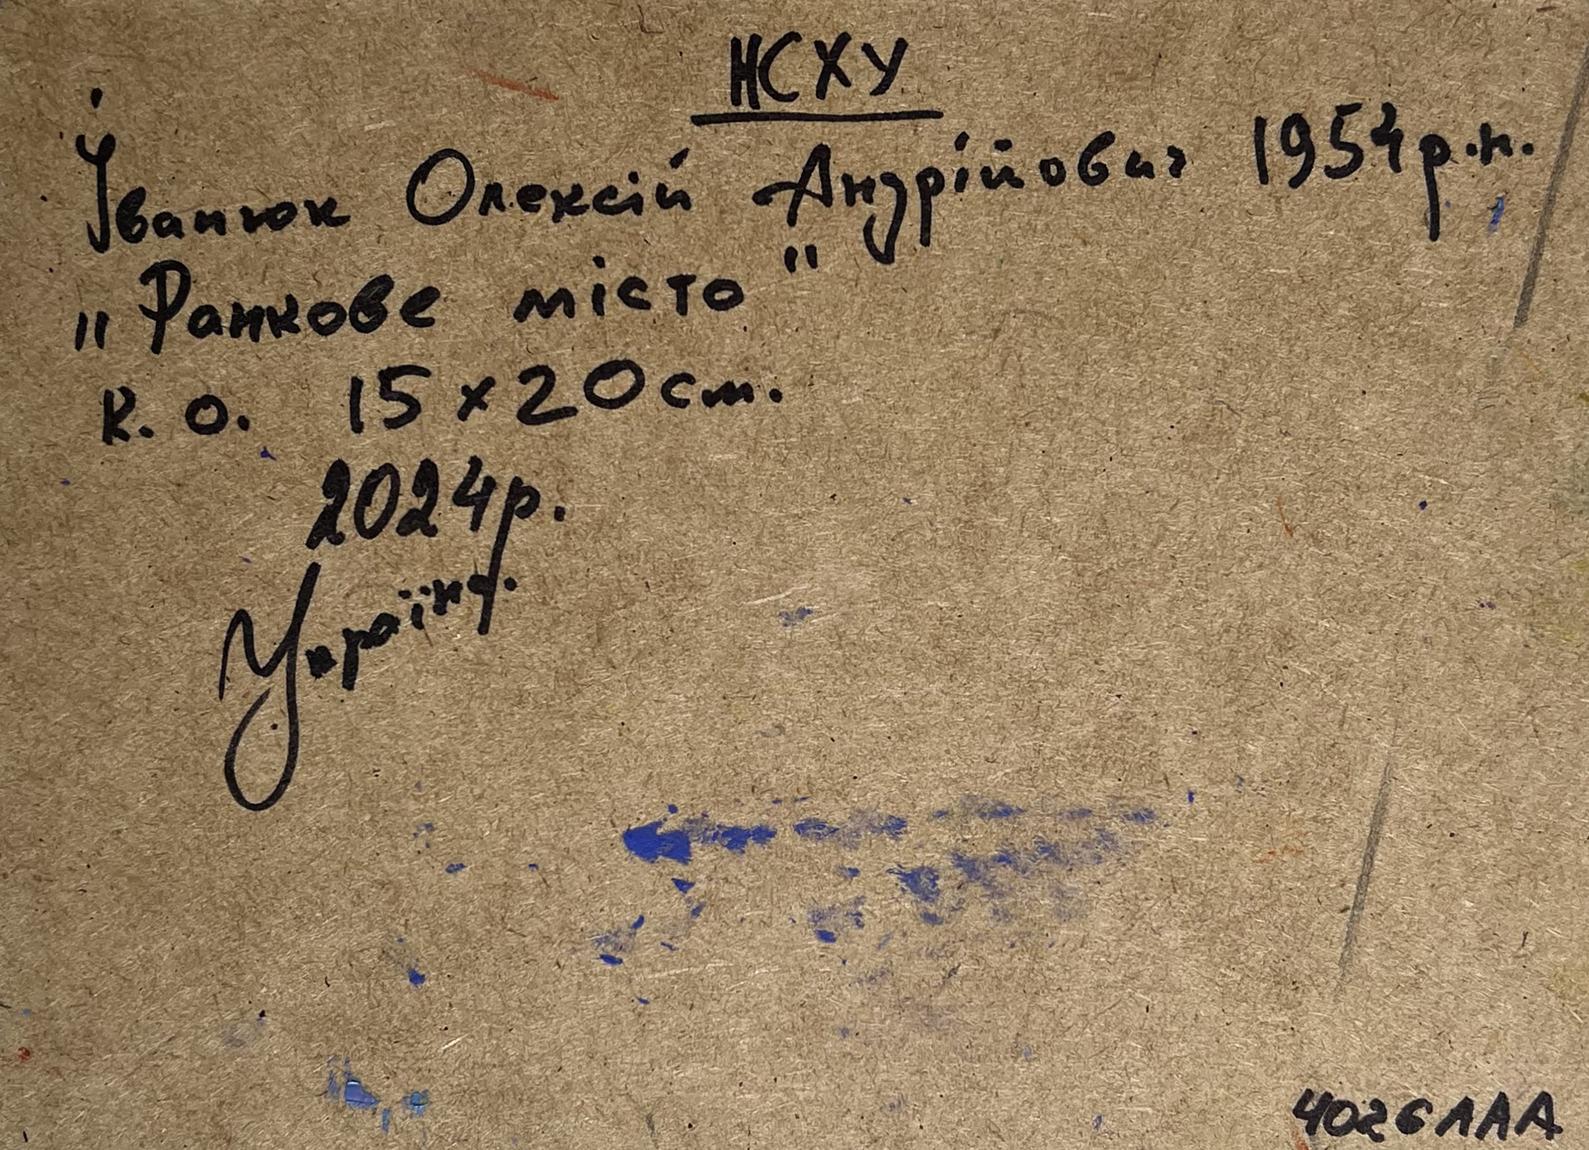 НСХУ
Іванюк Олексій Андрійович 1954р.н.
"Ранкове місто"
к. о. 15 x 20 см.
2024р.
Україна.
4026ЛАА